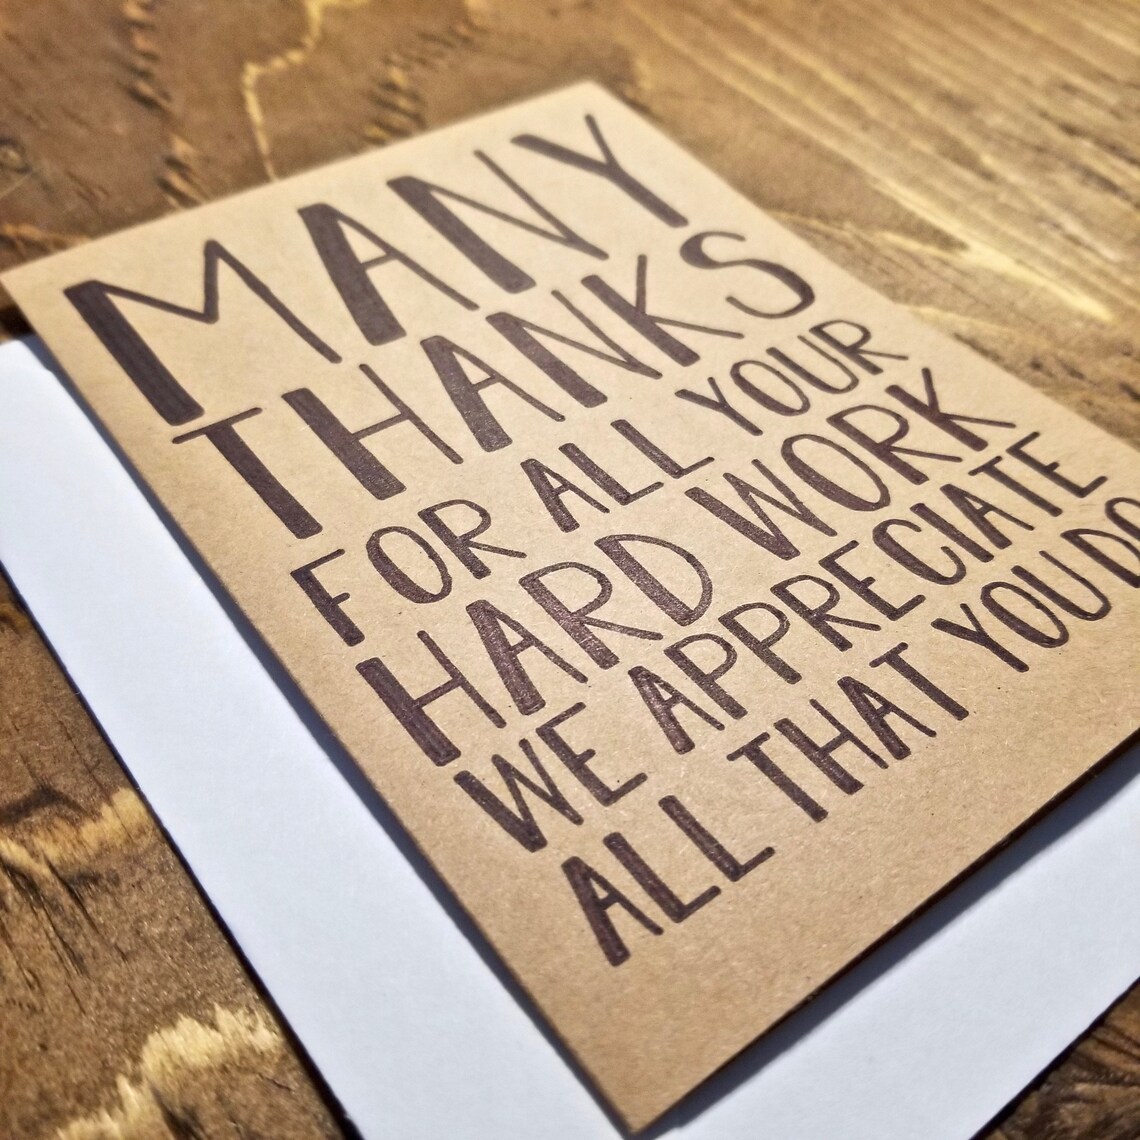 MANY
THANKS
FOR ALL YOUR
HARD WORK
WE APPRECIATE
ALL THAT YOU DO